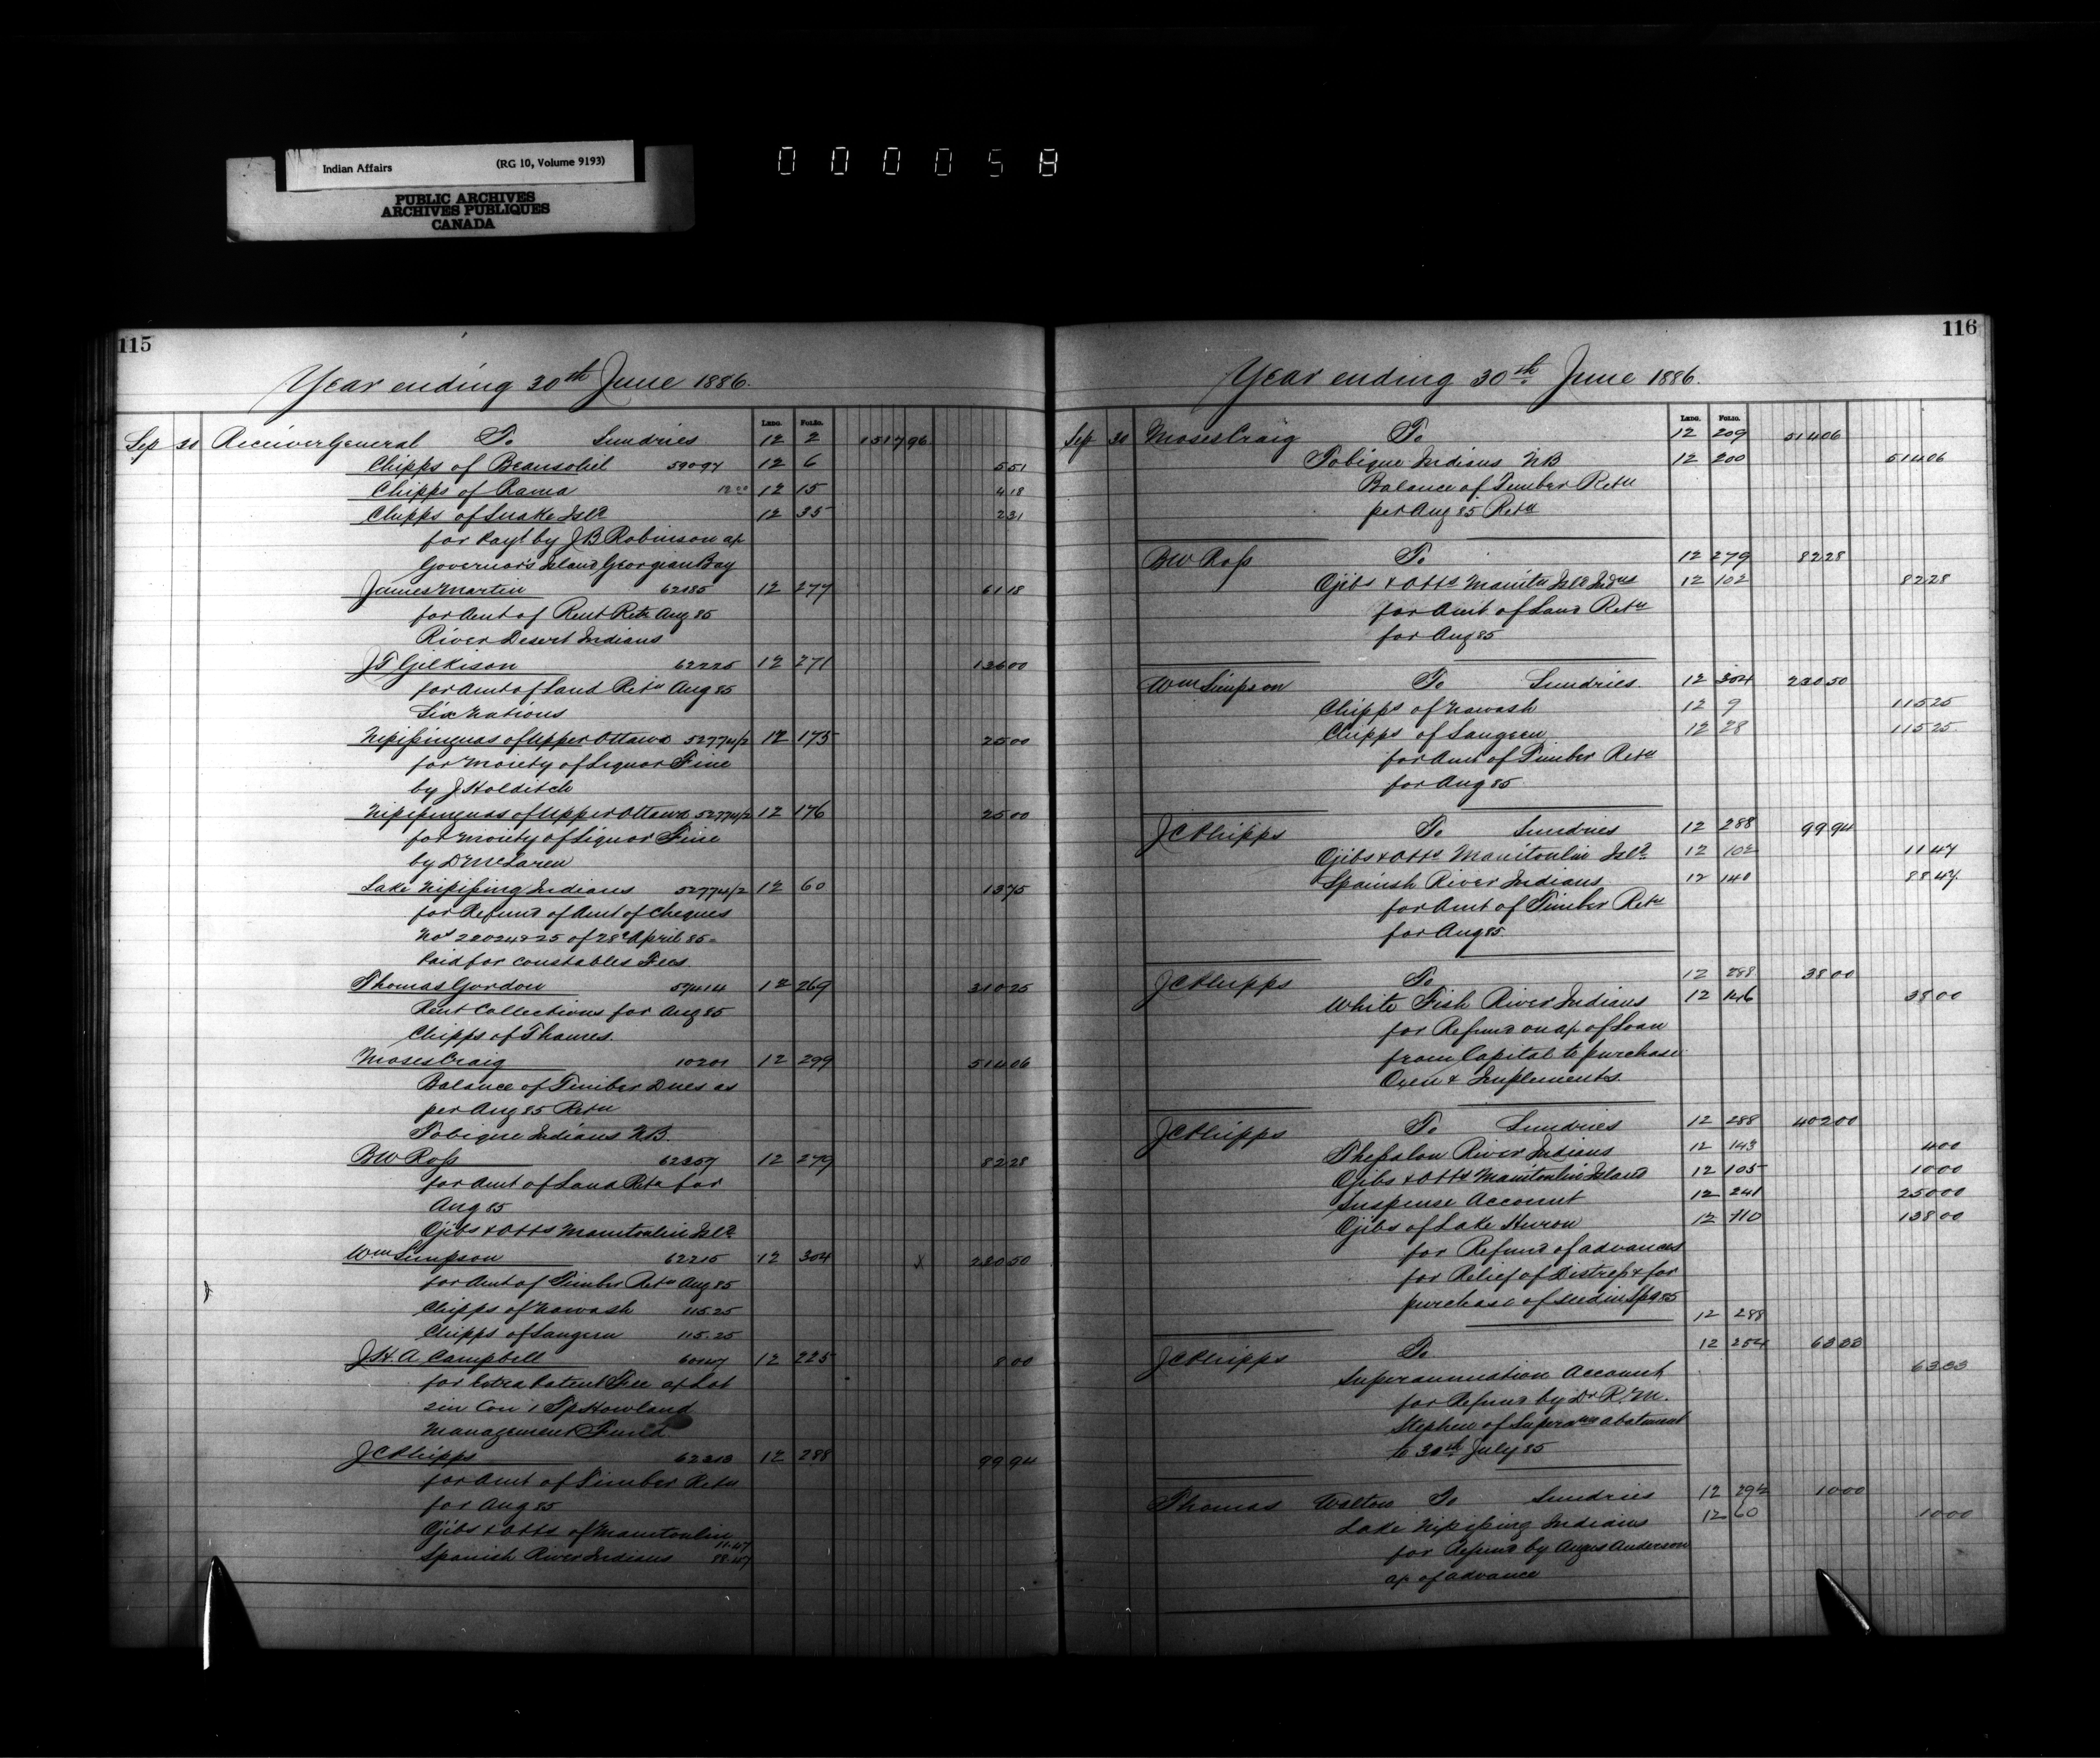 Indian Affairs (RG 10, Volume 9193)
PUBLIC ARCHIVES
ARCHIVES PUBLIQUES
CANADA
000058
115
Year ending 30th June 1886.
Ledg. Folio.
Sep 30 Receiver General To Sundries 12 2 1517 96
Chipps of Beausoliel 59097 12 6 5 51
Chipps of Rama 12 15 4 18
Chipps of Snake Isld 12 35 2 31
for Payt by J B Robinson ap
Governor's Island Georgian Bay
James Martin 62185 12 277 61 18
for Amt of Rent Retn Aug 85
River Desert Indians
J T Gilkison 62225 12 271 136 00
for Amt of Land Retn Aug 85
Six Nations
Nipissinguas of Upper Ottawa 52774/2 12 175 25 00
for Moiety of Liquor Fine
by J Holditch
Nipissinguas of Upper Ottawa 52774/2 12 176 25 00
for Moiety of Liquor Fine
by D McLaren
Lake Nipissing Indians 52774/2 12 60 13 75
for Refund of Amt of Cheques
Nos 22024 & 25 of 28th April 85
Paid for Constables Fees
Thomas Gordon 57414 12 269 310 25
Rent Collections for Aug 85
Chipps of Thames.
Moses Craig 10201 12 299 514 06
Balance of Timber Dues as
per Aug 85 Retn
Tobique Indians NB.
BW Ross 62357 12 279 82 28
for Amt of Land Retn for
Aug 85
Ojibs & Otts Manitoulin Isld
Wm Simpson 62215 12 304 x 230 50
for Amt of Timber Retn Aug 85
Chipps of Nawash 115.25
Chipps of Saugeen 115.25
J.H.A. Campbell 12 225 8 00
for Extra Patent Fee ap Lot
2 in Con 1 Tp Howland
Management Fund
JC Phipps 62313 12 288 99 94
for Amt of Timber Retn
for Aug 85
Ojibs & Otts of Manitoulin 11.47
Spanish River Indians 88.47
116
Year ending 30th June 1886.
Ledg. Folio.
Sep 30 Moses Craig To 12 209 514 06
Tobique Indians NB 12 200 514 06
Balance of Timber Retn
per Aug 85 Retn
BW Ross To 12 279 82 28
Ojibs & Otts Manitn Isld Indns 12 102 82 28
for Amt of Land Retn
for Aug 85
Wm Simpson To Sundries. 12 304 230 50
Chipps of Nawash 12 9 115 25
Chipps of Saugeen 12 28 115 25
for Amt of Timber Retn
for Aug 85
JC Phipps To Sundries 12 288 99 94
Ojibs & Otts Manitoulin Isld 12 102 11 47
Spanish River Indians 12 140 88 47
for Amt of Timber Retn
for Aug 85.
JC Phipps To 12 288 38 00
White Fish River Indians 12 146 38 00
for Refund on ap of Loan
from Capital to purchase
Oxen & Implements.
JC Phipps To Sundries 12 288 402 00
Thessalon River Indians 12 143 4 00
Ojibs & Otts Manitoulin Island 12 105 10 00
Suspense Account 12 241 250 00
Ojibs of Lake Huron 12 110 138 00
for Refund of advances
for Relief of Distress & for
purchase of seed in Spg 85
12 288
JC Phipps To 12 254 63 33
Superannuation Account 63 33
for Refund by Dr R. M.
Stephen of Superann abatement
to 30th July 85
Thomas Walton To Sundries 12 294 10 00
Lake Nipissing Indians 12 60 10 00
for Refund by Angus Anderson
ap of advance